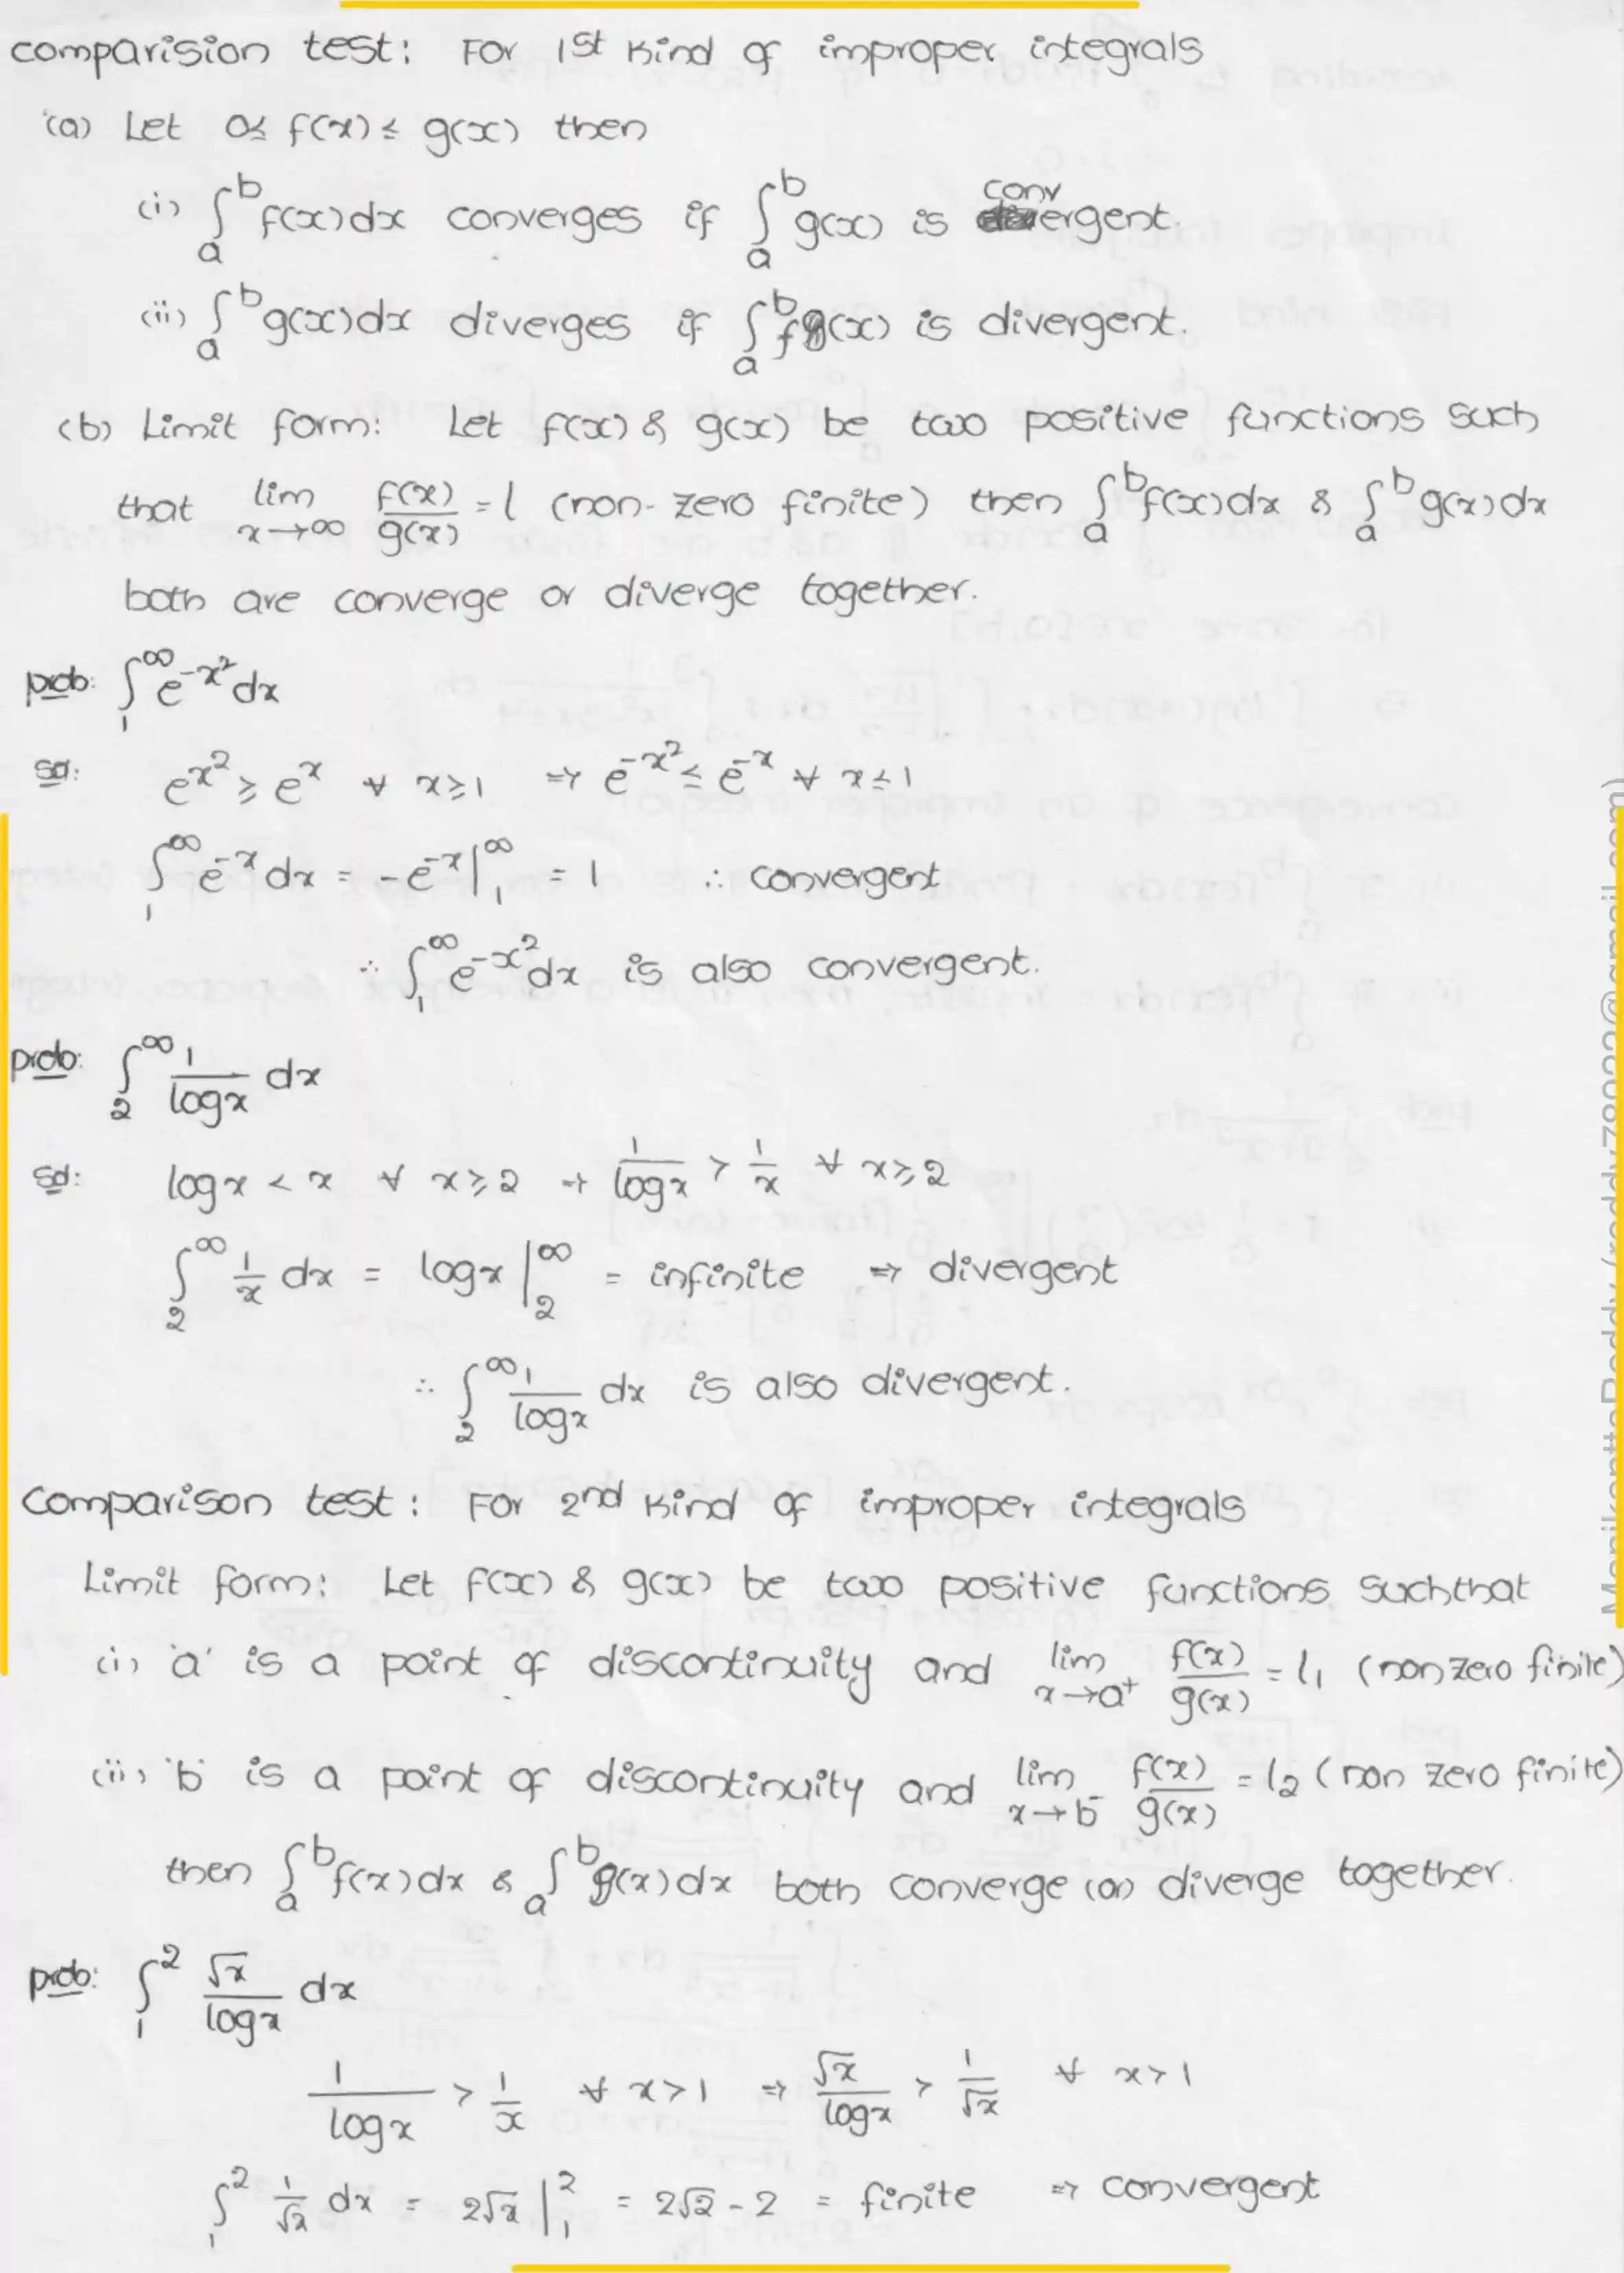 comparision test: For 1st kind of improper integrals
(a) Let 0≤ f(x) ≤ g(x) then
(i) ∫_a^b f(x)dx converges if ∫_a^b g(x) is convergent.
(ii) ∫_a^b g(x)dx diverges if ∫_a^b f(x) is divergent.
(b) Limit form: Let f(x) & g(x) be two positive functions such
that lim_{x→∞} f(x)/g(x) = l (non-zero finite) then ∫_a^b f(x)dx & ∫_a^b g(x)dx
both are converge or diverge together.
prob: ∫_1^∞ e^{-x²}dx
sol: e^{x²} ≥ e^x ∀ x≥1 ⇒ e^{-x²} ≤ e^{-x} ∀ x≤1
∫_1^∞ e^{-x}dx = -e^{-x}|_1^∞ = 1 ∴ convergent
∴ ∫_1^∞ e^{-x²}dx is also convergent.
prob: ∫_2^∞ 1/logx dx
sol: logx < x ∀ x≥2 → 1/logx > 1/x ∀ x≥2
∫_2^∞ 1/x dx = logx |_2^∞ = infinite ⇒ divergent
∴ ∫_2^∞ 1/logx dx is also divergent.
Comparison test: For 2nd kind of improper integrals
Limit form: Let f(x) & g(x) be two positive functions suchthat
(i) 'a' is a point of discontinuity and lim_{x→a⁺} f(x)/g(x) = l₁ (non zero finite)
(ii) 'b' is a point of discontinuity and lim_{x→b⁻} f(x)/g(x) = l₂ (non zero finite)
then ∫_a^b f(x)dx & ∫_a^b g(x)dx both converge (or) diverge together.
prob: ∫_1^2 √x/logx dx
1/logx > 1/x ∀ x>1 ⇒ √x/logx > 1/√x ∀ x>1
∫_1^2 1/√x dx = 2√x |_1^2 = 2√2 - 2 = finite ⇒ convergent